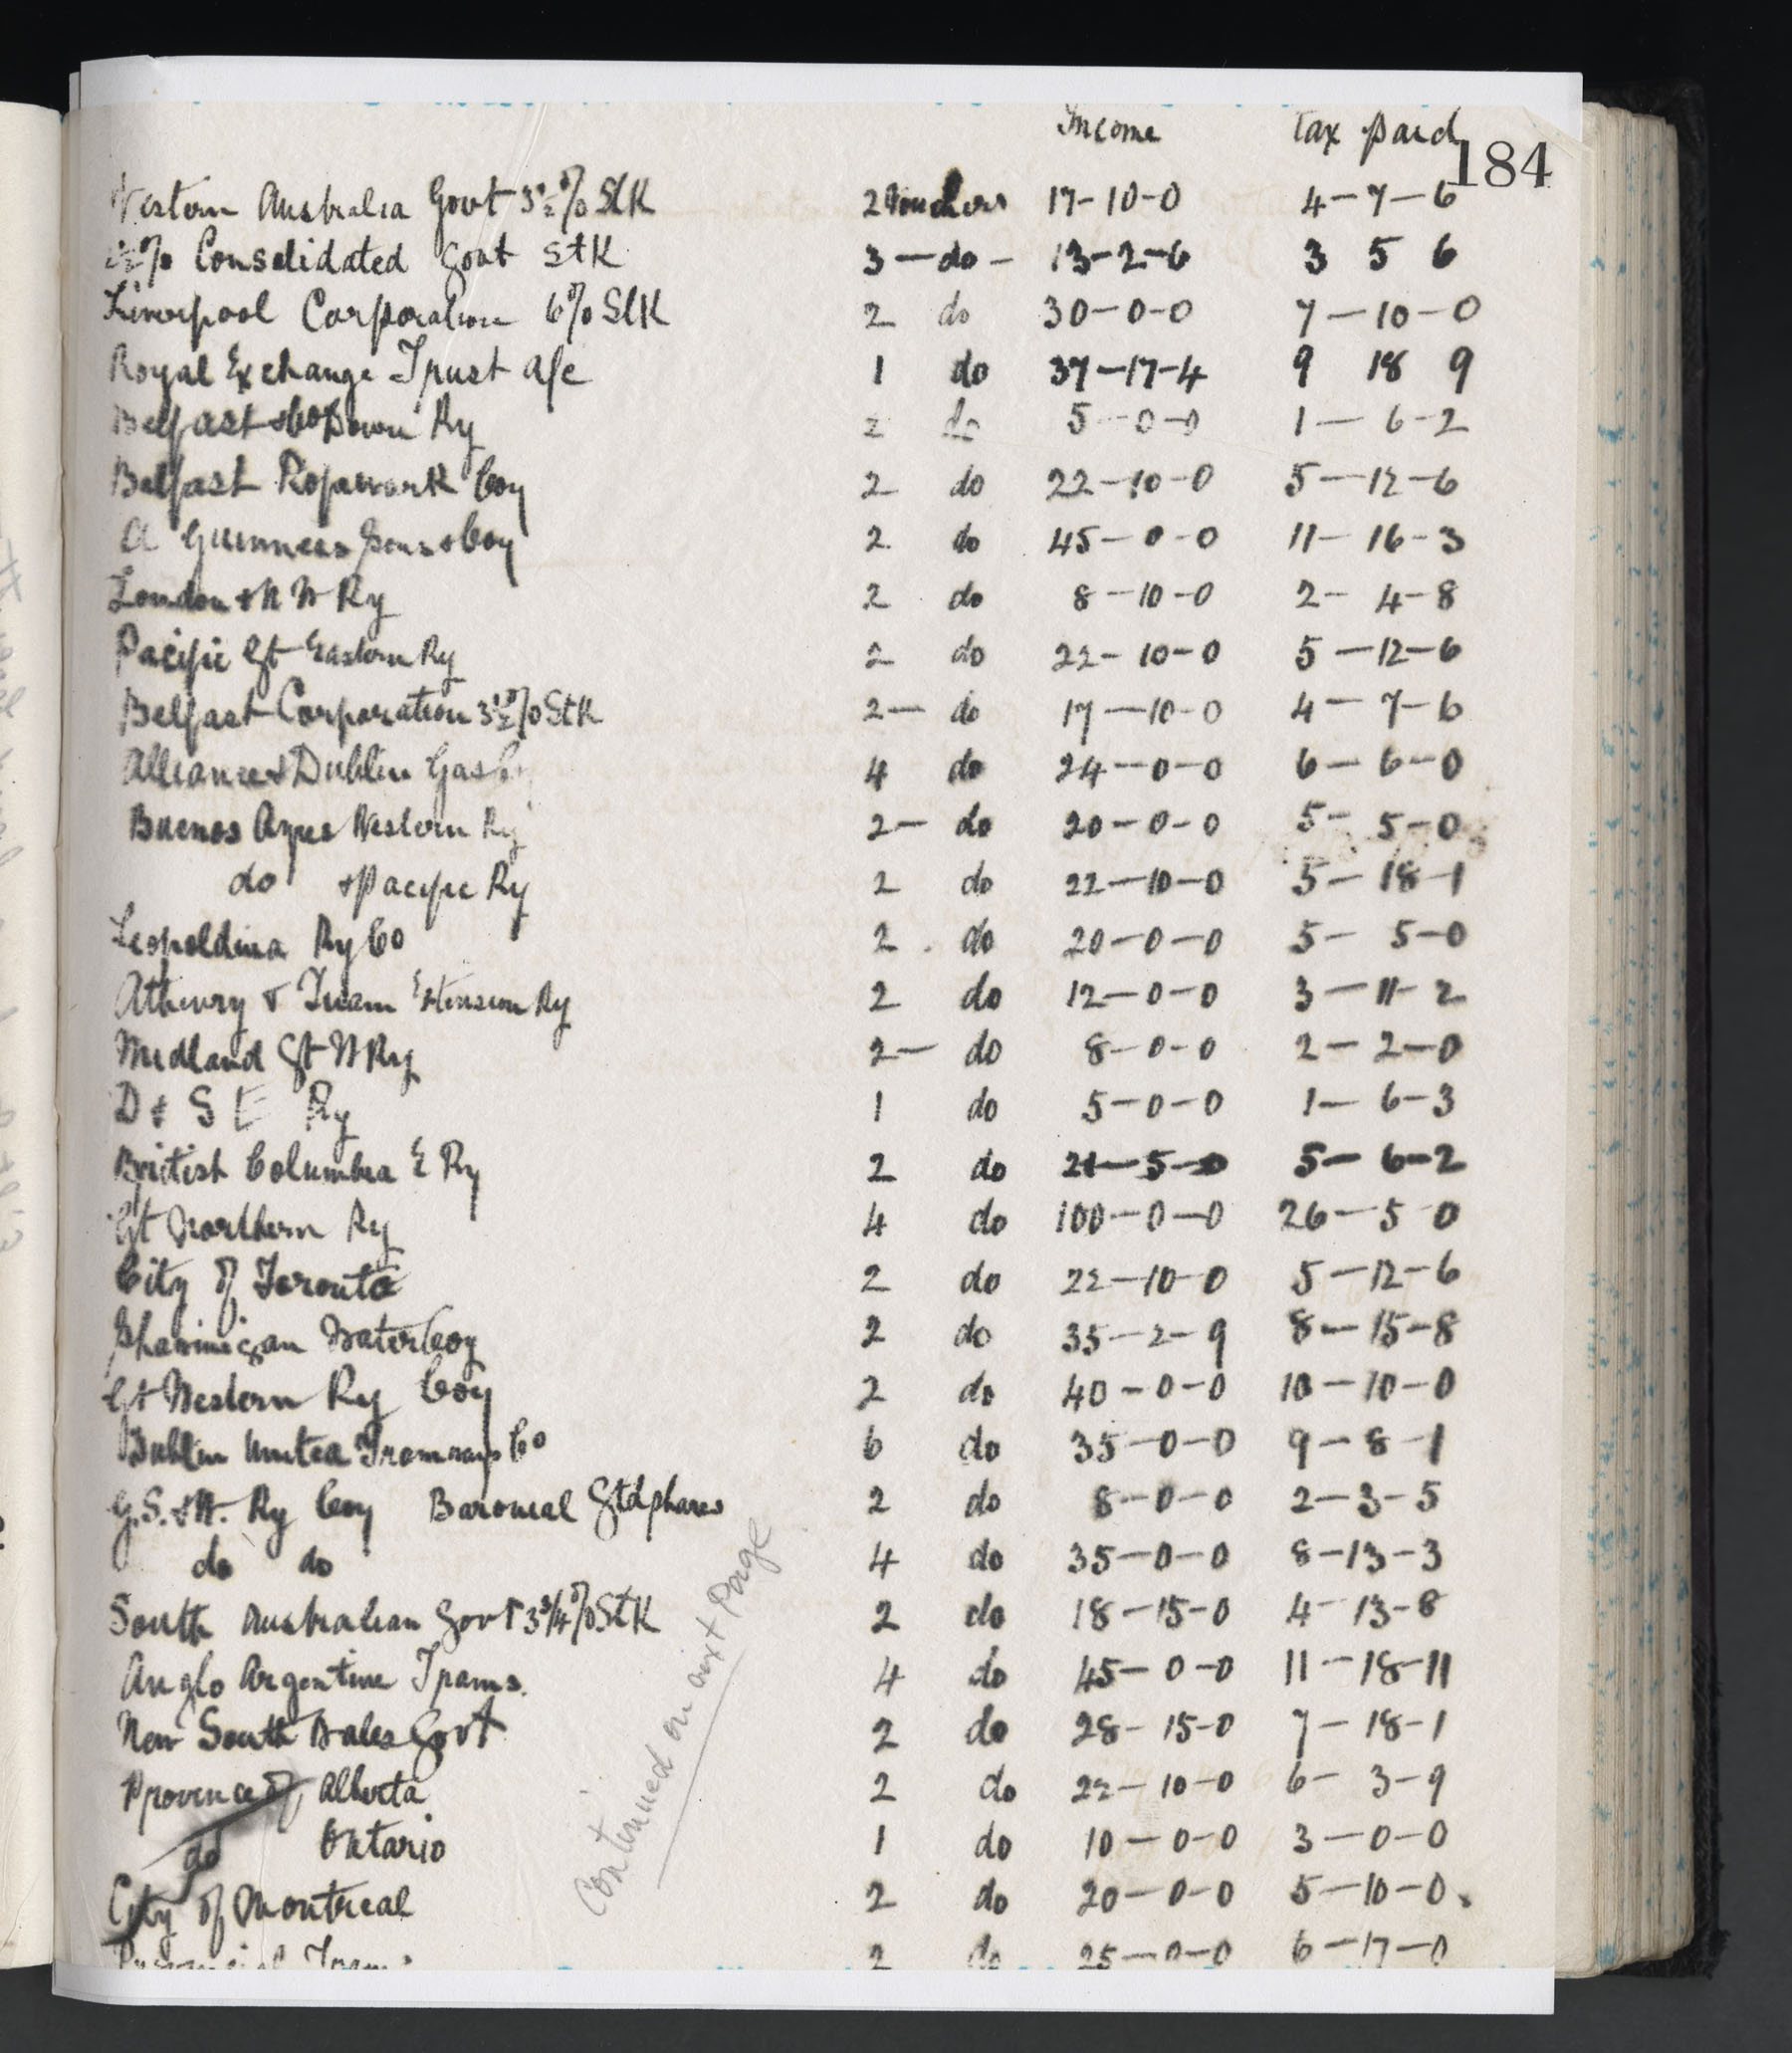 Income Tax paid
184
Western Australia Govt 3½% Stk 2 Vouchers 17-10-0 4-7-6
2½% Consolidated Govt Stk 3 - do - 13-2-6 3 5 6
Liverpool Corporation 6% Stk 2 do 30-0-0 7-10-0
Royal Exchange Trust a/c 1 do 37-17-4 9 18 9
Belfast & Co Down Ry 2 do 5-0-0 1-6-2
Belfast Ropework Coy 2 do 22-10-0 5-12-6
A Guinness Sons & Coy 2 do 45-0-0 11-16-3
London & N W Ry 2 do 8-10-0 2-4-8
Pacific Gt Eastern Ry 2 do 22-10-0 5-12-6
Belfast Corporation 3½% Stk 2 - do 17-10-0 4-7-6
Alliance & Dublin Gas Co 4 do 24-0-0 6-6-0
Buenos Ayres Western Ry 2 - do 20-0-0 5-5-0
do & Pacific Ry 2 do 22-10-0 5-18-1
Leopoldina Ry Co 2 do 20-0-0 5-5-0
Athenry & Tuam Extension Ry 2 do 12-0-0 3-11-2
Midland Gt W Ry 2 - do 8-0-0 2-2-0
D & S E Ry 1 do 5-0-0 1-6-3
British Columbia E Ry 2 do 21-5-0 5-6-2
Gt Northern Ry 4 do 100-0-0 26-5 0
City of Toronto 2 do 22-10-0 5-12-6
Shawinigan Water Coy 2 do 35-2-9 8-15-8
Gt Western Ry Coy 2 do 40-0-0 10-10-0
Dublin United Tramways Co 6 do 35-0-0 9-8-1
G.S. & W. Ry Coy Baronial Gtd shares 2 do 8-0-0 2-3-5
do do 4 do 35-0-0 8-13-3
South Australian Govt 3¾% Stk 2 do 18-15-0 4-13-8
Anglo Argentine Trams. 4 do 45-0-0 11-18-11
New South Wales Govt 2 do 28-15-0 7-18-1
Province of Alberta 2 do 22-10-0 6-3-9
do Ontario 1 do 10-0-0 3-0-0
City of Montreal 2 do 20-0-0 5-10-0
Provincial Trams 2 do 25-0-0 6-17-0
Continued on next Page